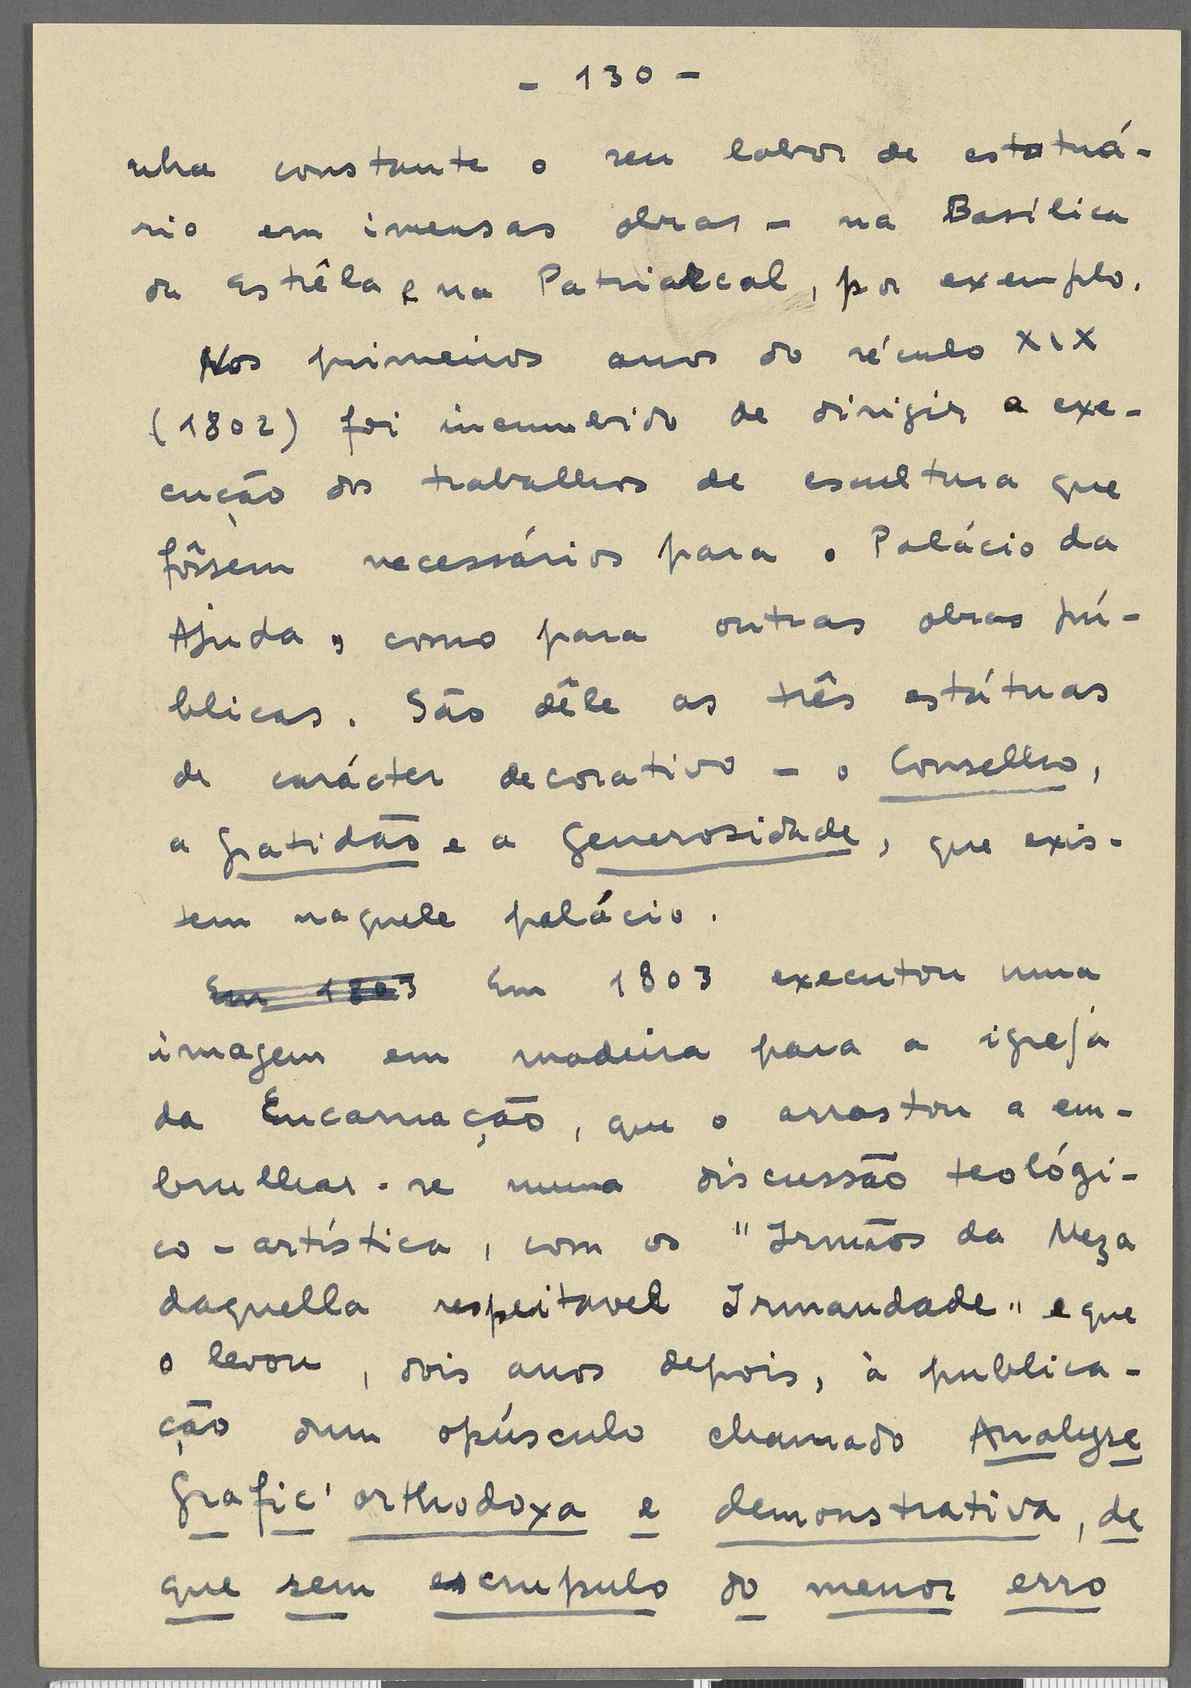 - 130 -
nha constante o seu labor de estatuá-
rio em imensas obras - na Basílica
da Estrêla e na Patriarcal, por exemplo.
Nos primeiros anos do século XIX
(1802) foi incumbido de dirigir a exe-
cução dos trabalhos de escultura que
fôssem necessários para o Palácio da
Ajuda, como para outras obras pú-
blicas. São dêle as três estátuas
de carácter decorativo - o Conselho,
a Gratidão e a Generosidade, que exis-
tem naquele palácio.
Em 1803 Em 1803 executou uma
imagem em madeira para a igreja
da Encarnação, que o arrastou a em-
brulhar-se numa discussão teológi-
co-artística, com os "Irmãos da Meza
daquella respeitavel Irmandade" e que
o levou, dois anos depois, à publica-
ção dum opúsculo chamado Analyse
Grafic' orthodoxa e demonstrativa, de
que sem escrupulo do menor erro